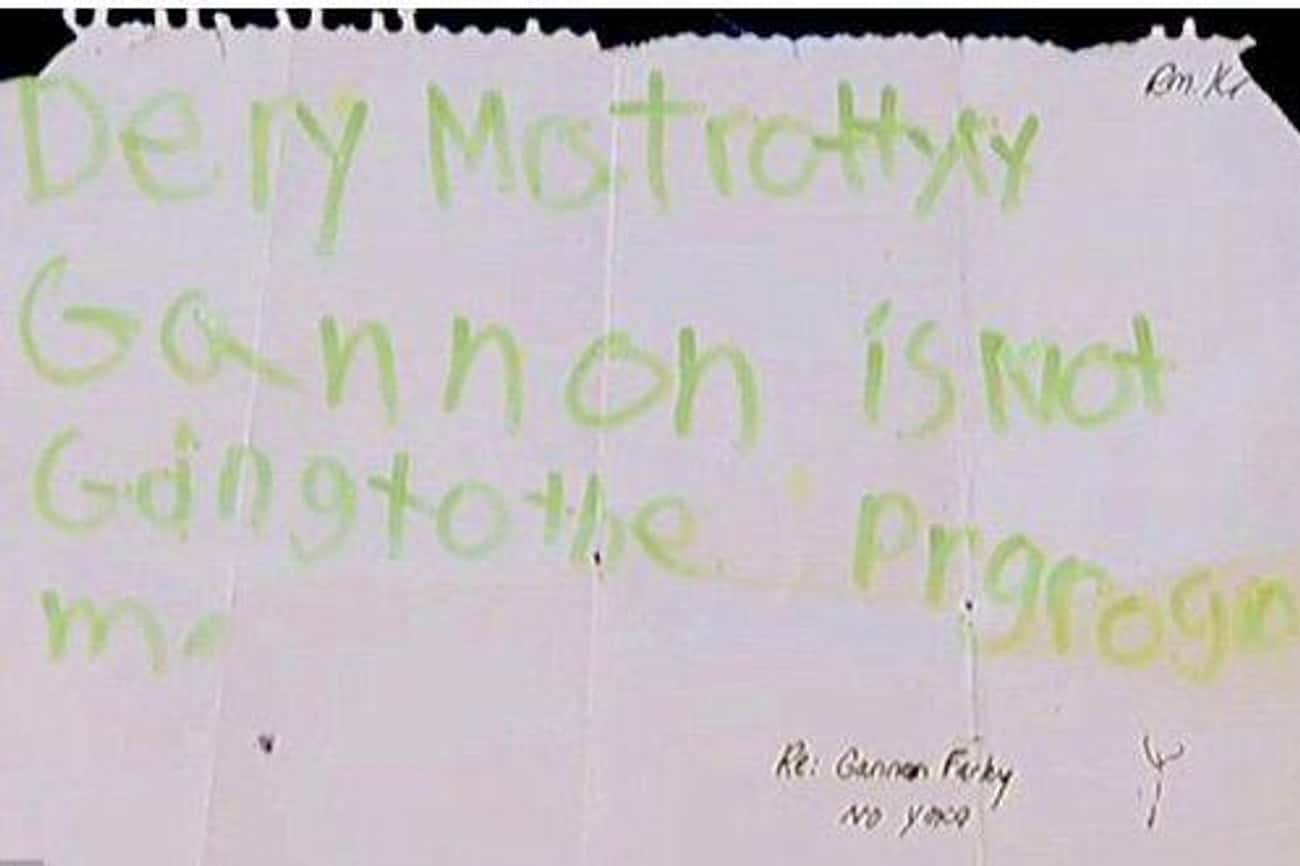 Rm. K1
Dery Motrottyxy
Gannon is Not
Gaingtothe Prgrogra
m.
Re: Gannon Farky
No YMCA